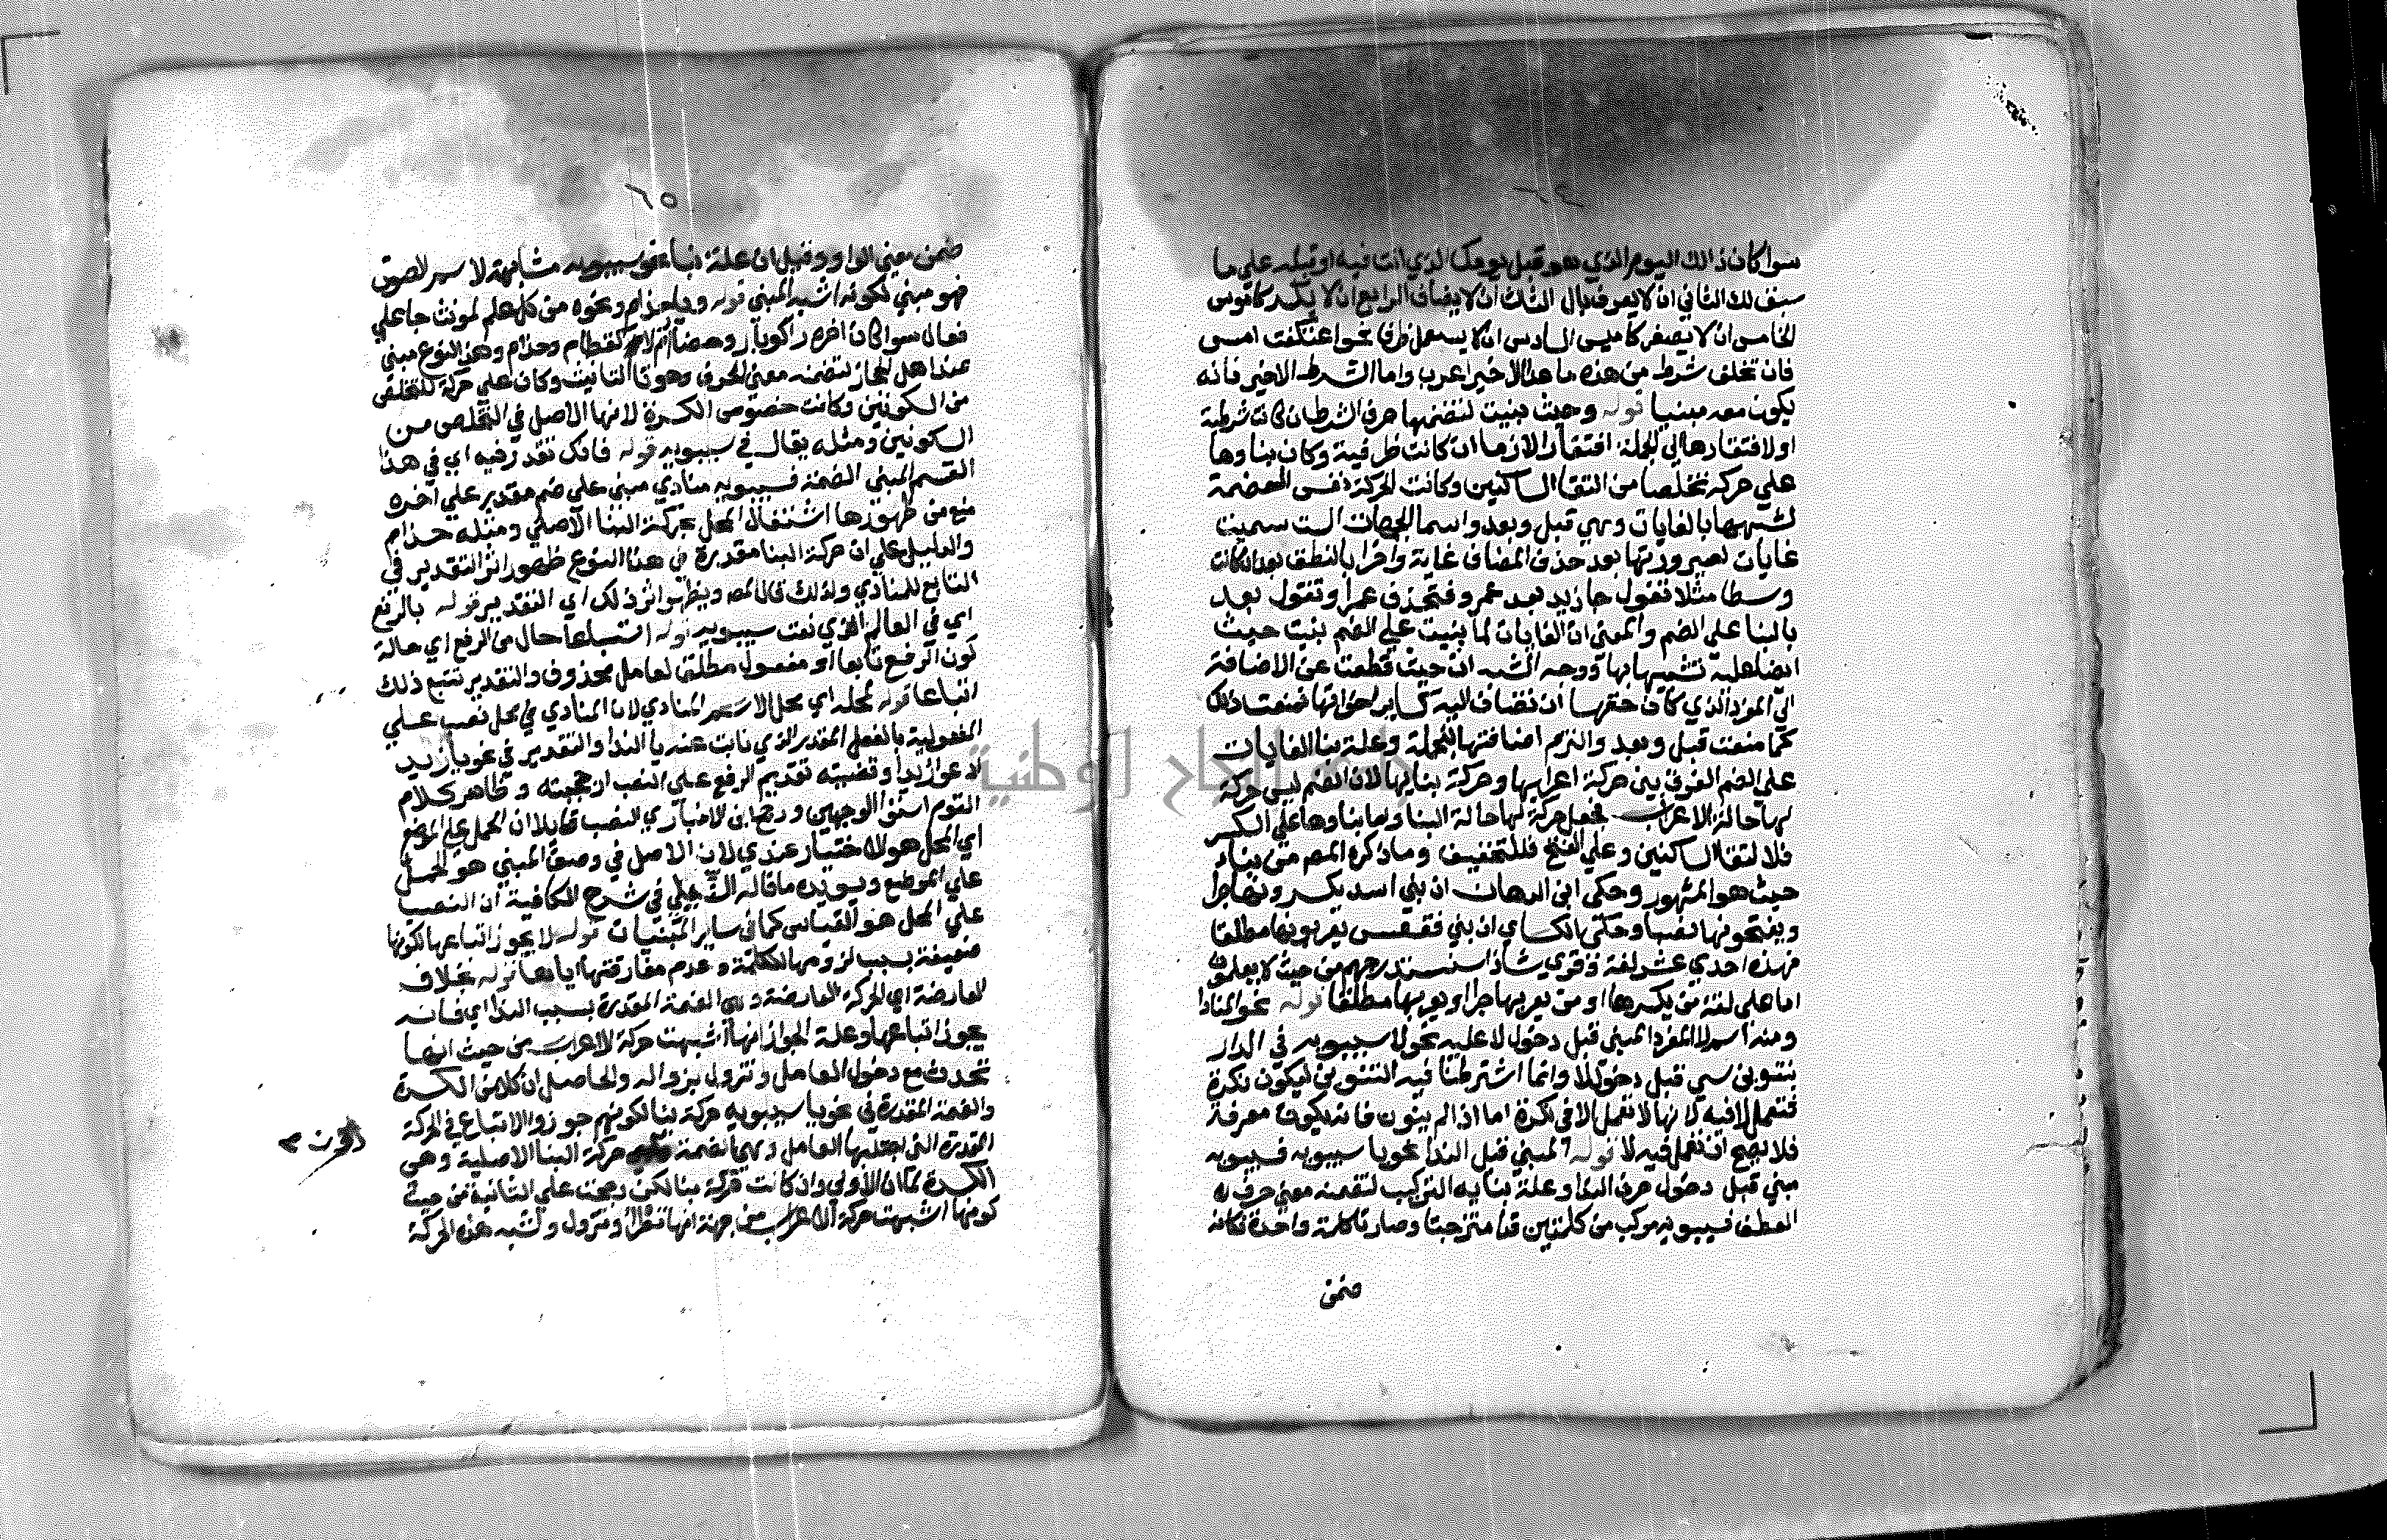 سوا كان ذالك اليوم الذي هو قبل يومك الذي انت فيه او قبله على ما
سبق لك الثاني ان لا يعرف بال الثالث ان لا يضاف الرابع ان لا يكسر كاموس
الخامس ان لا يصغر كاميس السادس ان لا يستعمل ظرفا نحو اعتكفت امس
فان تخلف شرط من هذه ما عدا الاخير اعرب واما الشرط الاخير فانه
يكون معه مبنيا قوله وحيث بنيت لتضمنها حرف الشرط ان كانت شرطية
او لافتقارها الي الجملة افتقارا لازما ان كانت ظرفية وكان بناوها
علي حركة تخلصا من التقا الساكنين وكانت الحركة نفس الضمة
لشبهها بالغايات وهي قبل وبعد واسما الجهات الست سميت
غايات لصيرورتها بعد حذف المضاف غاية واخرا بالنطق بعد ان كانت
وسطا مثلا تقول جا زيد بعد عمرو فتحذف عمرا وتقول بعد
بالبنا علي الضم والمعني ان الغايات لما بنيت علي الضم بنيت حيث
ايضا عليه تشبيها بها ووجه الشبه ان حيث قطعت عن الاضافة
الي المفرد الذي كان حقها ان تضاف اليه كساير اخواتها فمنعت ذلك
كما منعت قبل وبعد والتزم اضافتها للجملة وعلة بنا الغايات
علي الضم الفرق بين حركة اعرابها وحركة بنايها لان الضم ليس حركة
لها حالة الاعراب فجعل حركة لها حالة البنا واما بناوها علي الكسر
فلالتقا الساكنين وعلي الفتح فللتخفيف وما ذكره المص من بناء
حيث هو المشهور وحكي ابن الدهان ان بني اسد يكسرونها جرا
ويفتحونها نصبا وحكي الكساي ان بني فقعس يعربونها مطلقا
فهذه احدي عشر لغة وقري شاذا سنستدرجهم من حيث لا يعلمون
اما على لغة من يكسرها او من يعربها جرا او يعربها مطلقا قوله نحو المنادا
ومنه اسم لا المفرد المبني قبل دخول لا عليه نحو لا سيبويه في الدار
بتنوين سي قبل دخول لا وانما اشترطنا فيه التنوين ليكون نكرة
فتعمل لا فيه لانها لا تعمل الا في نكرة اما اذا لم ينون فانه يكون معرفة
فلا يصح ان تعمل فيه لا قوله المبني قبل الندا نحو يا سيبويه فسيبويه
مبني قبل دخول حرف الندا وعلة بنايه التركيب لتضمنه معني حرف
العطف فسيبويه مركب من كلمتين قد امتزجتا وصارتا كلمة واحدة فكانه
ضمن
٦٥
ضمن معني الواو وقيل ان علة بناء نحو سيبويه مشابهة لاسم الصوت
فهو مبني لكونه اشبه المبني قوله ويا حذام ونحوه من كل علم لمونث جا علي
فعال سوا كان اخره را كوبار وحضار ام لا كقطام وحذام وهذا النوع مبني
عند اهل الحجاز لتضمنه معني الحرف وهو تا التانيث وكان علي حركة للتخلص
من السكونين وكانت خصوص الكسرة لانها الاصل في التخلص من
السكونين ومثله يقال في سيبويه قوله فانك تقدر فيه اي في هذا
القسم المبني الضمة فسيبويه منادي مبني علي ضم مقدر علي اخره
منع من ظهورها اشتغال المحل بحركة البنا الاصلي ومثله حذام
والدليل علي ان حركة البنا مقدرة في هذا النوع ظهور اثر التقدير في
التابع للمنادي ولذلك قال المص ويظهر اثر ذلك اي التقدير قوله بالرفع
اي في العالم الذي نعت سيبويه قوله اتباعا حال من الرفع اي حالة
كون الرفع تابعا او مفعول مطلق لعامل محذوف والتقدير تتبع ذلك
اتباعا قوله لمحله اي محل الاسم المنادي لان المنادي في محل نصب علي
المفعولية بالفعل المقدر الذي نابت عنه يا الندا والتقدير في نحو يا زيد
ادعو زيدا وقضيته تقديم الرفع على النصب ارجحيته وظاهر كلام
القوم استوا الوجهين ورجح ابن الانباري النصب قايلا ان الحمل علي الموضع
اي المحل هو الاختيار عندي لان الاصل في وصف المبني هو الحمل
علي الموضع ويويده ما قاله في شرح الكافية ان النصب
علي المحل هو القياس كما في ساير المبنيات قوله لا يجوز اتباعها لكونها
ضعيفة بسبب لزومها الكلمة وعدم مفارقتها اياها قوله بخلاف
العارضة اي الحركة العارضة وهي الضمة المقدرة بسبب الندا اي فانه
يجوز اتباعها وعلة الجواز انها اشبهت حركة الاعراب من حيث انها
تحدث مع دخول العامل وتزول بزواله والحاصل ان كلا من الكسرة
والضمة المقدرة في نحو يا سيبويه حركة بنا لكونهم جوزوا الاتباع في الحركة
المقدرة التي اجتلبها العامل وهي الضمة حركة البنا الاصلية وهي
الكسرة لما ان الاولي وان كانت حركة بنا لكن رجحت علي الثانية من حيث
كونها اشبهت حركة الاعراب من جهة انها تطرا وتزول ولشبه هذه الحركة